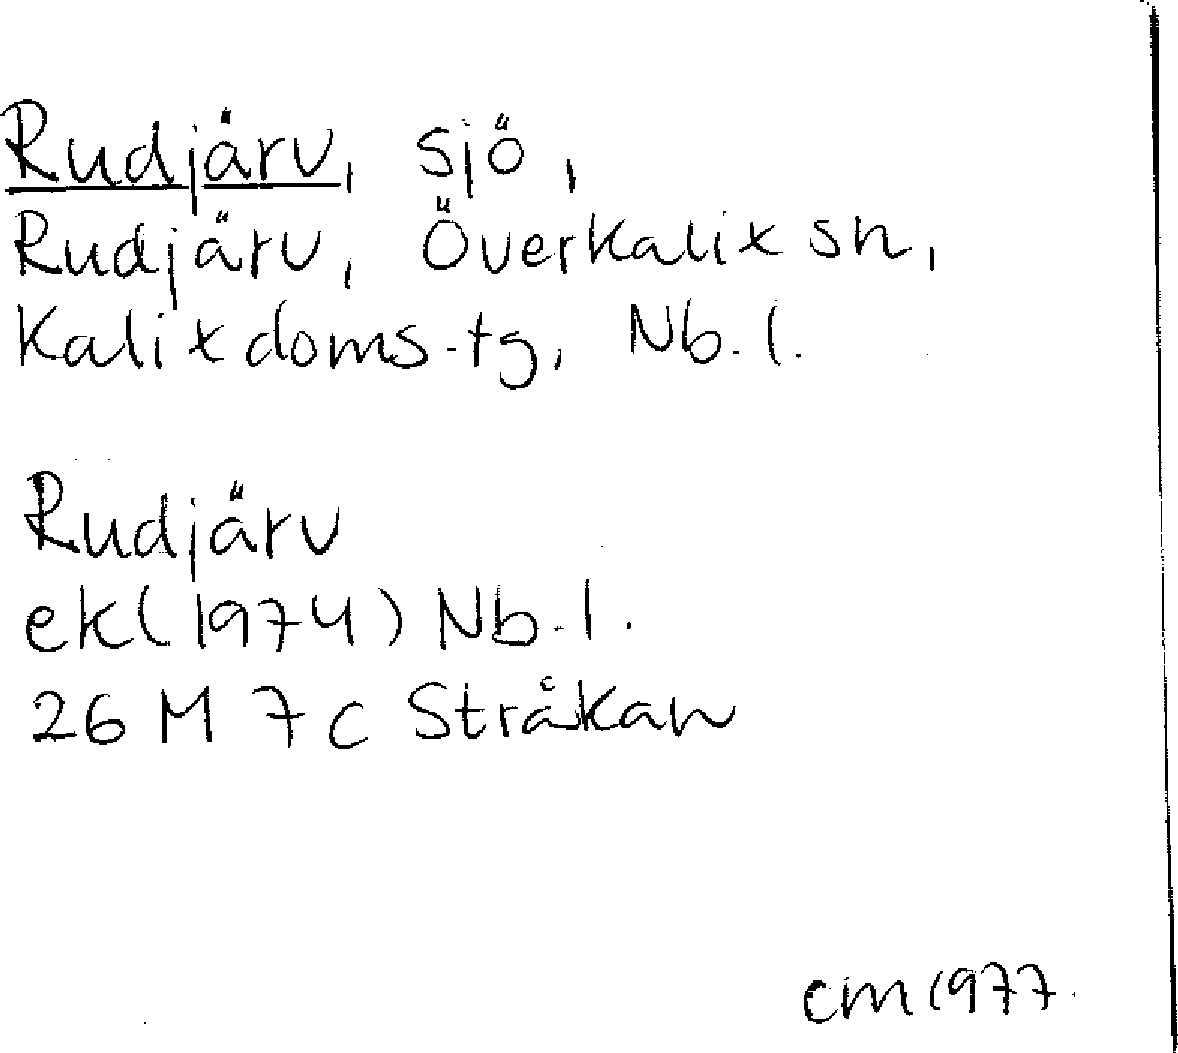 Rudjärv, sjö,
Rudjärv, Överkalix sn,
Kalix doms.tg, Nb.l.
Rudjärv
ek(1974) Nb.l.
26 M 7 c Stråkan
cm 1977.